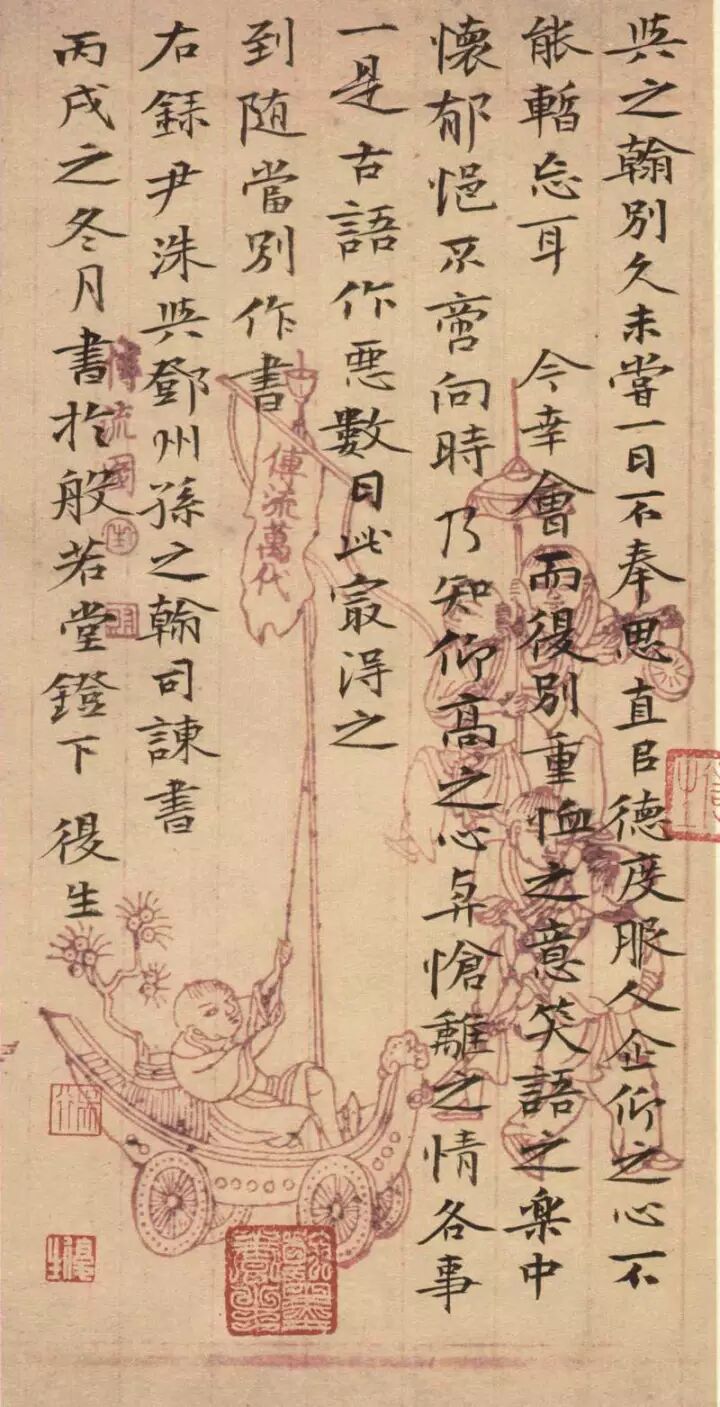 與之翰別久未嘗一日不奉思直臣德度服人企仰之心不
能暫忘耳 今幸會而復別重恤之意笑語之樂中
懷郁悒不啻向時乃知仰高之心與愴離之情各事
一是古語作惡數日此最得之
到隨當別作書
右錄尹洙與鄧州孫之翰司諫書
丙戌之冬月書於般若堂鐙下 復生
傳流萬代